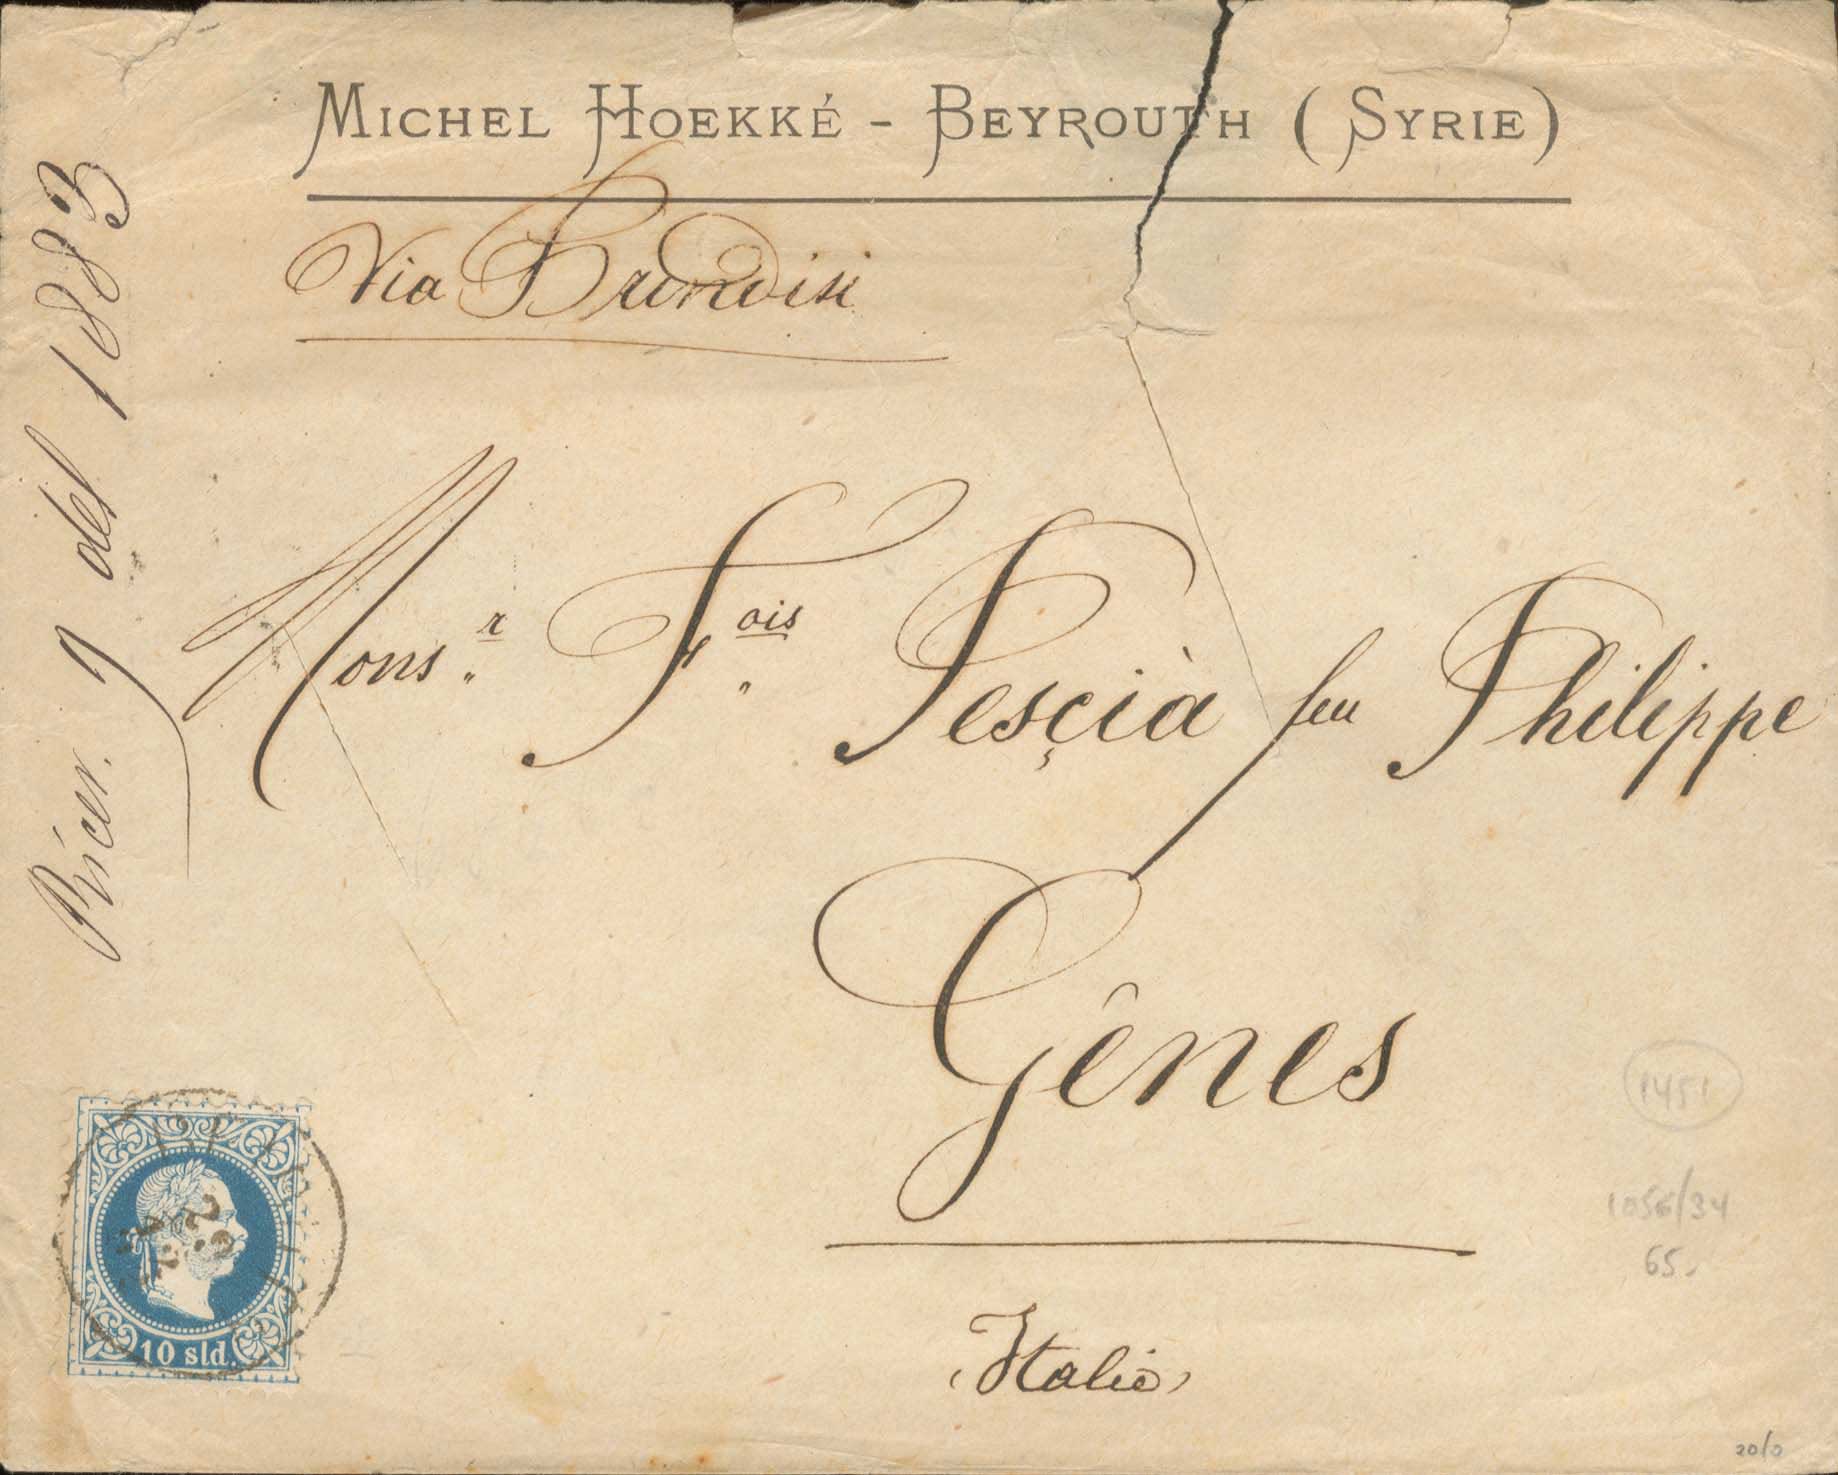 MICHEL HOEKKÉ - BEYROUTH (SYRIE)
Via Brindisi
9 del 1883
Mons.r F.ois Pesçià feu Philippe
Gênes
Italie
10 sld.
1451
1056/34
65.
20/0